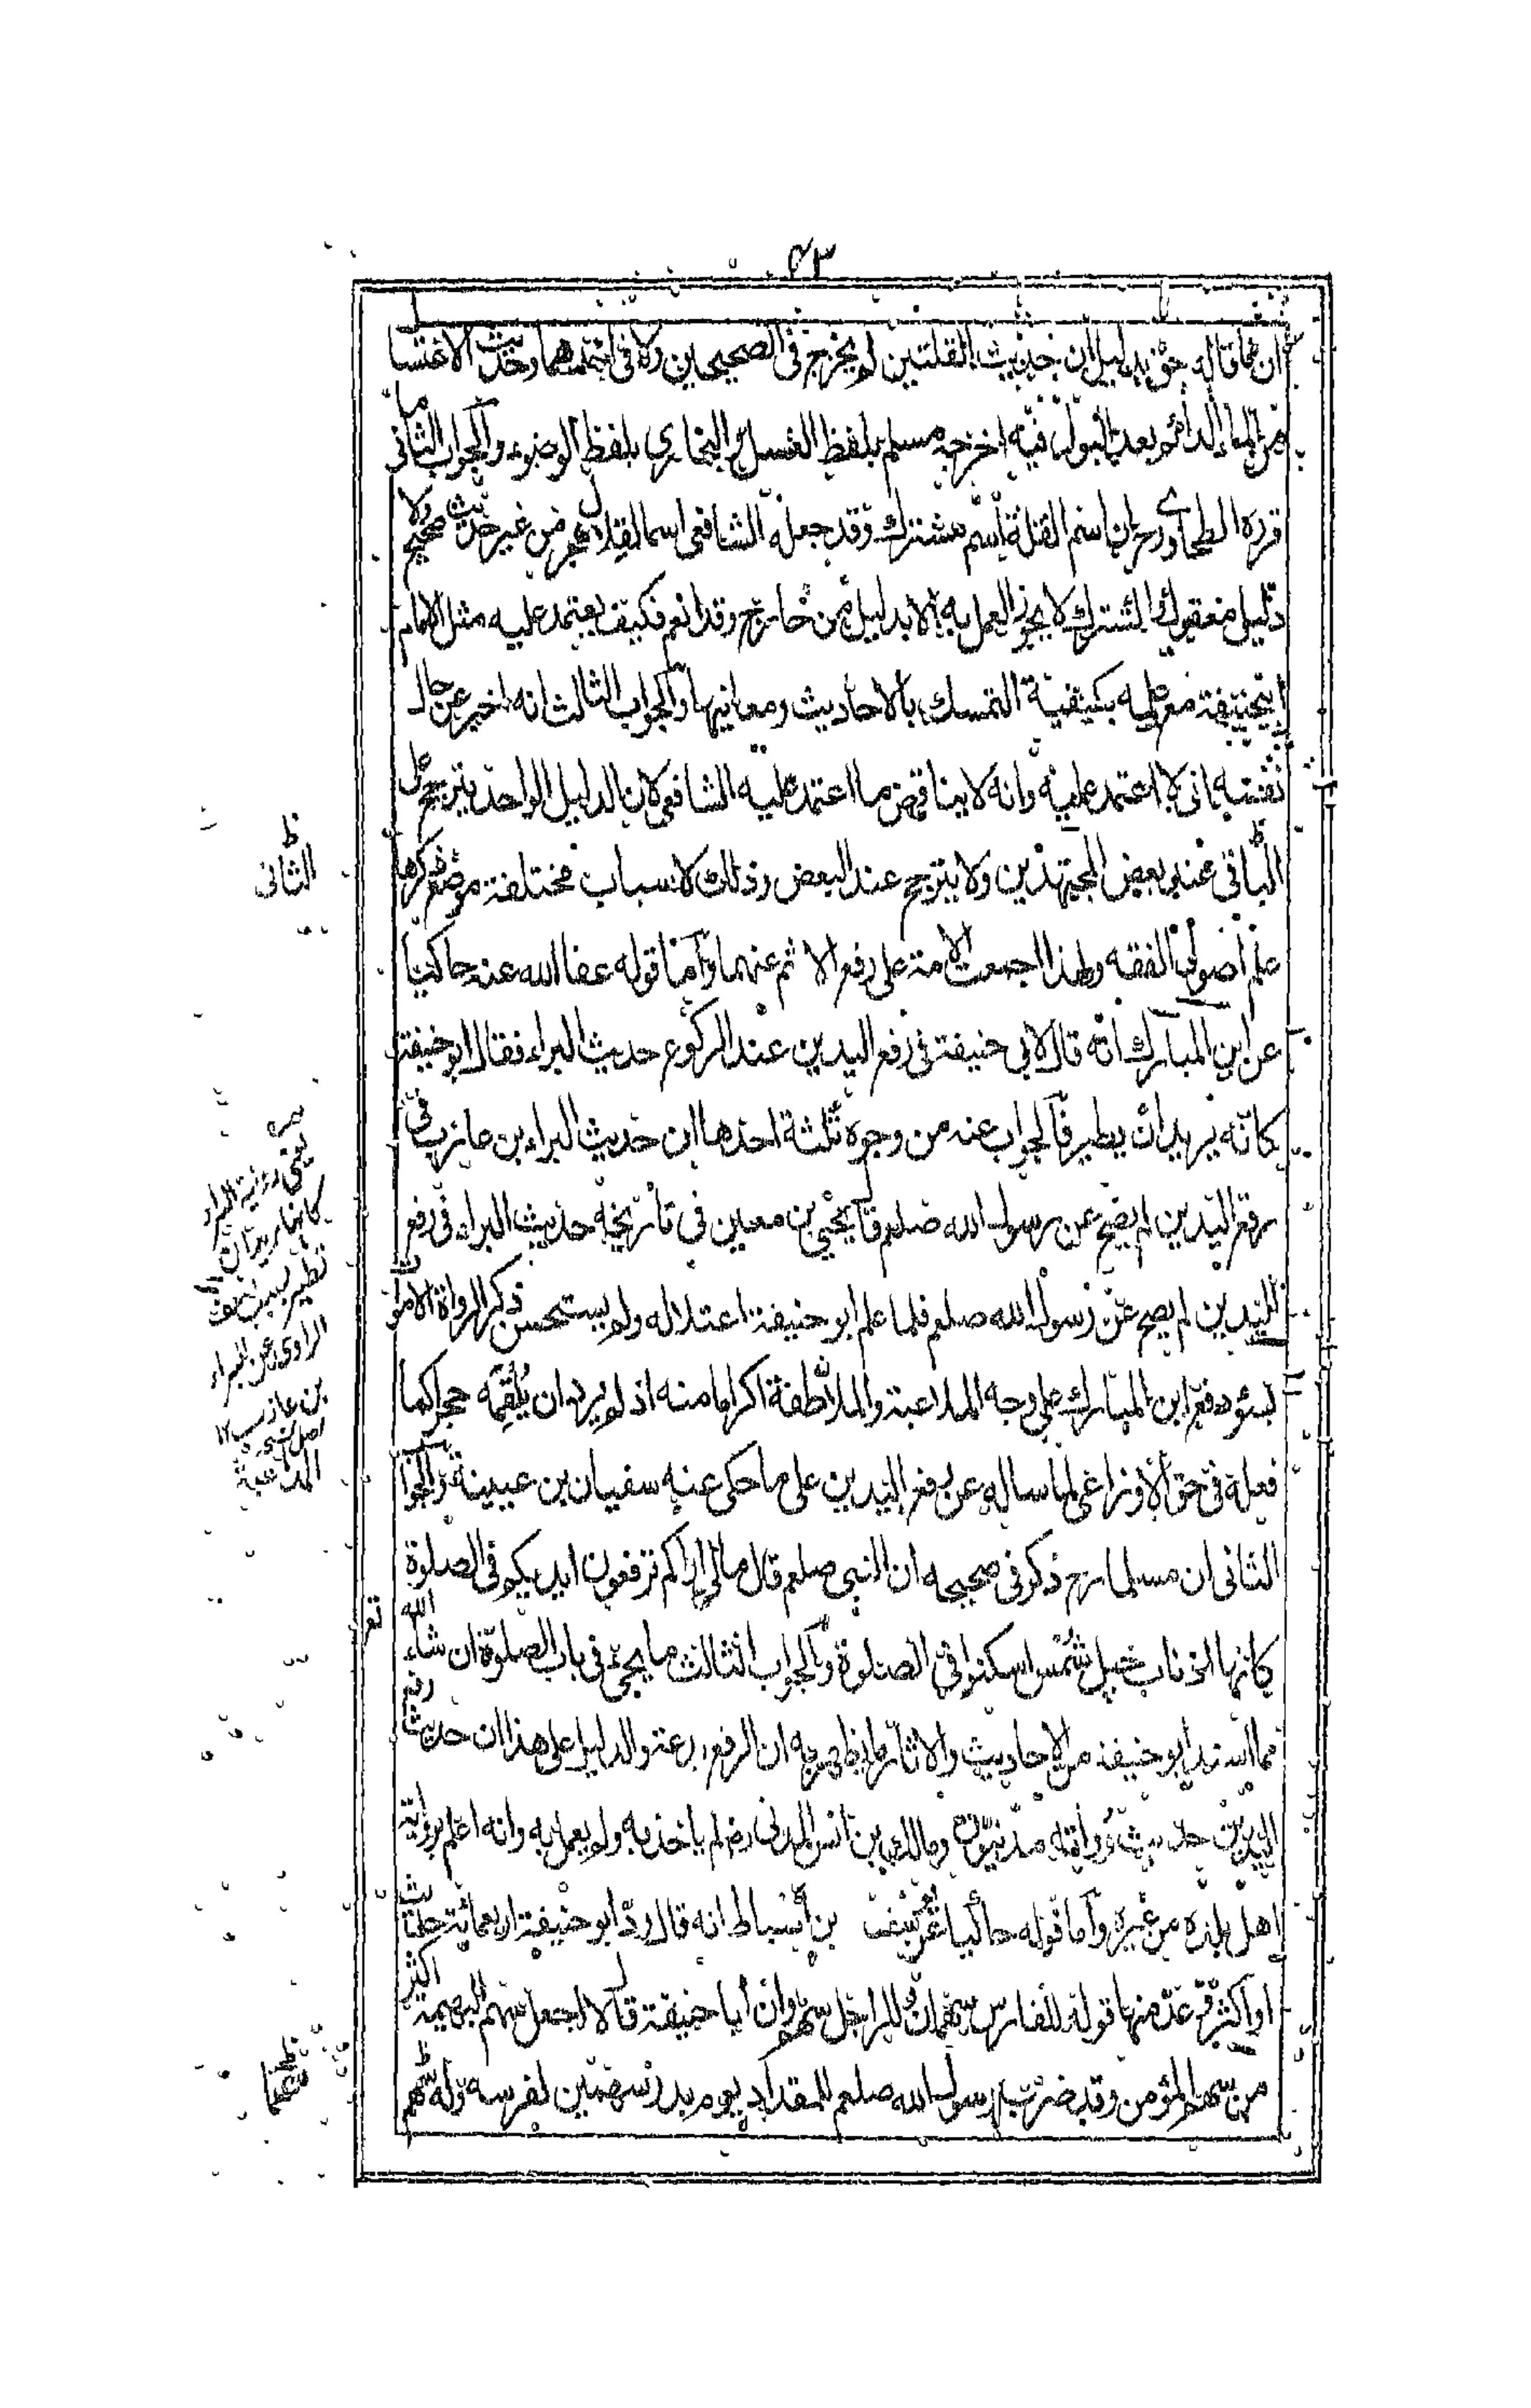 ٤٣
ان ما قاله حق بدليل ان حديث القلتين لم يخرج فى الصحيحين ولا فى احدهما وحديث الاغتسال
من الماء الدائم بعد البول فيه اخرجه مسلم بلفظ الغسل والبخارى بلفظ الوضوء والجواب الثانى ما
قرره الطحاوى رح ان اسم القلة اسم مشترك وقد جعله الشافعى اسما لقلال هجر من غير حديث صحيح ولا
دليل معقول والمشترك لا يجوز العمل به الا بدليل من خارج وقد انعم فكيف يعتمد عليه مثل الامام
ابيحنيفة مع علمه بكيفية التمسك بالاحاديث ومعانيها والجواب الثالث انه اخبر عن حال
نفسه بانى لا اعتمد عليه وانه لا يناقض ما اعتمد عليه الشافعى لان الدليل الواحد يترجح على
الباقى عند بعض المجتهدين ولا يترجح عند البعض وذلك لاسباب مختلفة موضع ذكرها
علم اصول الفقه ولهذا اجمعت الامة على رفع الاثم عنهما واما قوله عفا الله عنه حاكيا
عن ابن المبارك انه قال لابى حنيفة فى رفع اليدين عند الركوع حديث البراء فقال ابو حنيفة
كانه يريد ان يطير فالجواب عنه من وجوه ثلثة احدها ان حديث البراء بن عازب فى
رفع اليدين لم يصح عن رسول الله صلعم قال يحيى بن معين فى تاريخه حديث البراء فى رفع
اليدين لم يصح عن رسول الله صلعم فلما علم ابو حنيفة اعتلاله ولم يستحسن ذكر الرواة الاموات
بسوء دفع ابن المبارك على وجه الملاعبة والملاطفة اكراما منه اذ لم يرد ان يلقمه حجرا كما
فعله فى حق الاوزاعى لما ساله عن رفع اليدين على ما حكى عنه سفيان بن عيينة والجواب
الثانى ان مسلما رح ذكر فى صحيحه ان النبى صلعم قال مالى اراكم ترفعون ايديكم فى الصلوة
كانها اذناب خيل شمس اسكنوا فى الصلوة والجواب الثالث ما يجئ فى باب الصلوة ان شاء الله تع
مما اسند ابو حنيفة من الاحاديث والاثار ما يظهر به ان الرفع بدعة والدليل على هذا ان حديث رفع
اليدين حديث رواته مدنيون ومالك بن انس المدنى رض لم ياخذ به ولم يعمل به وانه اعلم برواية
اهل بلده من غيره واما قوله حاكيا عن يوسف بن اسباط انه قال رد ابو حنيفة اربعمائة حديث
او اكثر ثم عد منها قوله للفارس سهمان وللراجل سهم وان ابا حنيفة قال لا اجعل سهم البهيمة اكثر
من سهم المؤمن وقد ضرب رسول الله صلعم للمقداد يوم بدر سهمين لفرسه وله سهم
الثانى
يعنى رواية البراء
كانها يريد ان
تطير بسبب ضعف
الراوى عن البراء
بن عازب ١٢